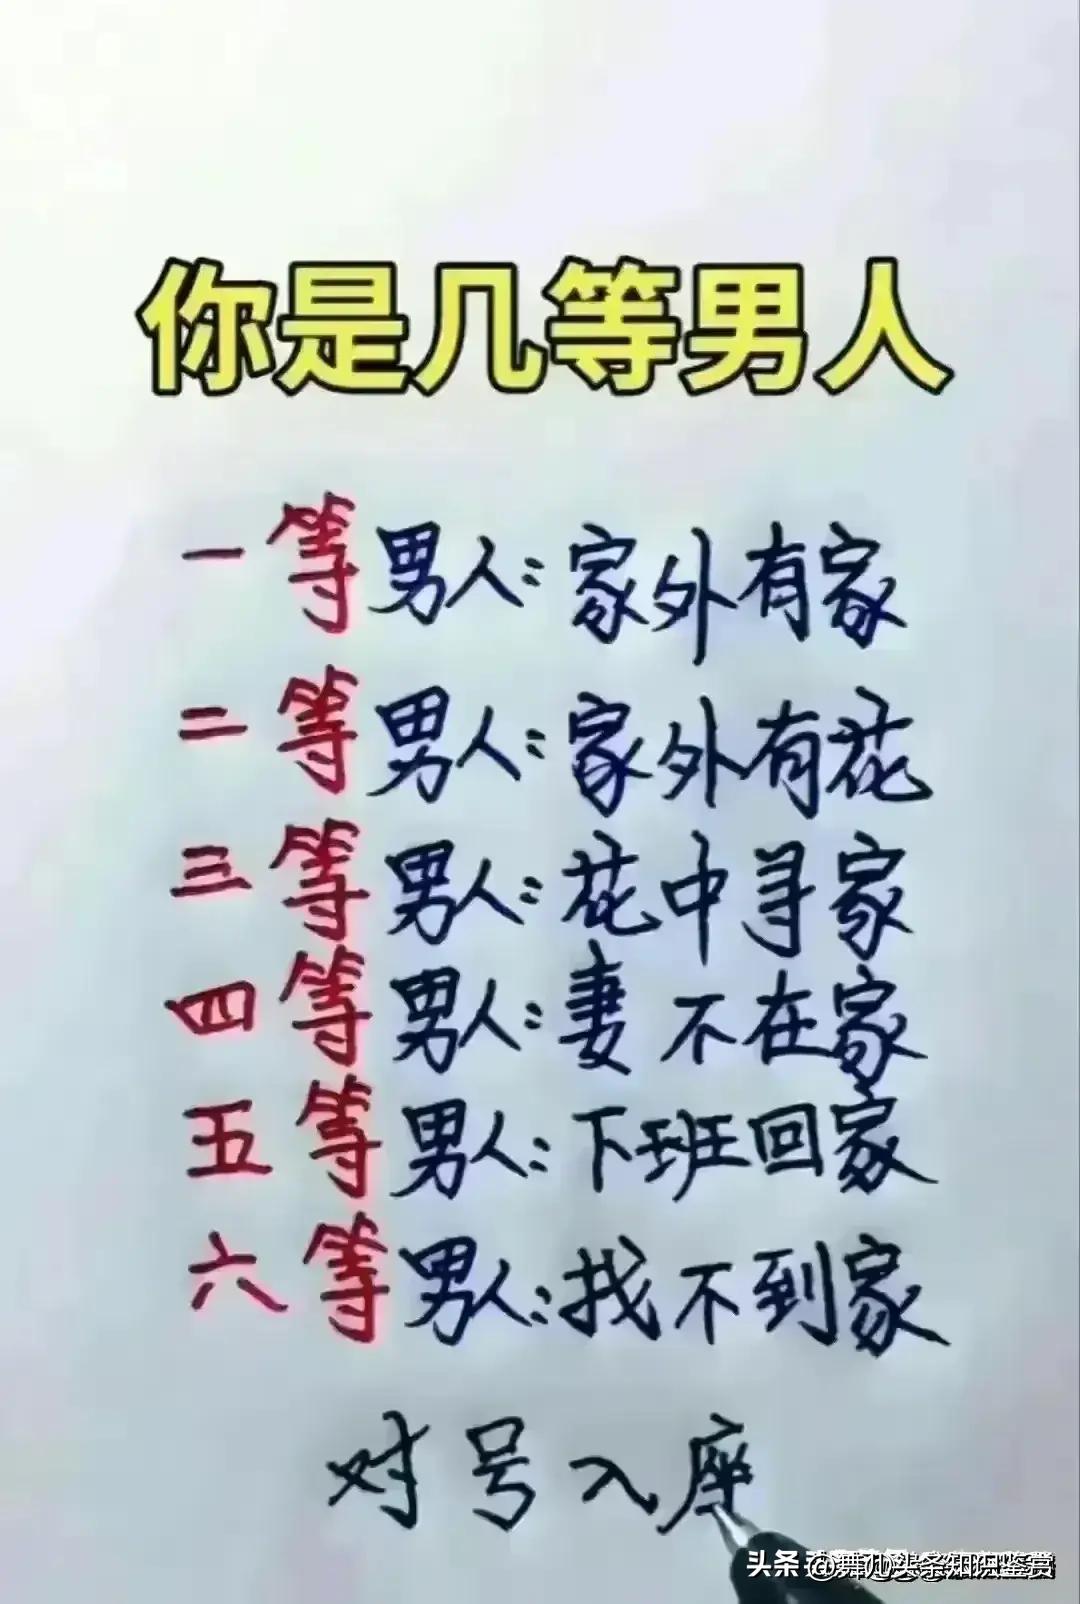 你是几等男人
一等男人:家外有家
二等男人:家外有花
三等男人:花中寻家
四等男人:妻不在家
五等男人:下班回家
六等男人:找不到家
对号入座
头条 @舞儿头条知识鉴赏